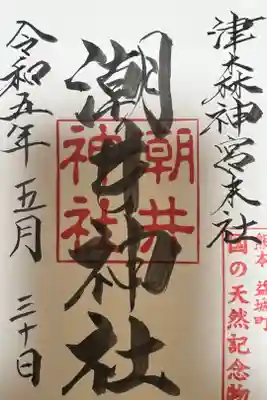 熊本 益城町
国の天然記念物
津森神宮末社
潮井神社
潮井
神社
令和五年 五月 三十日